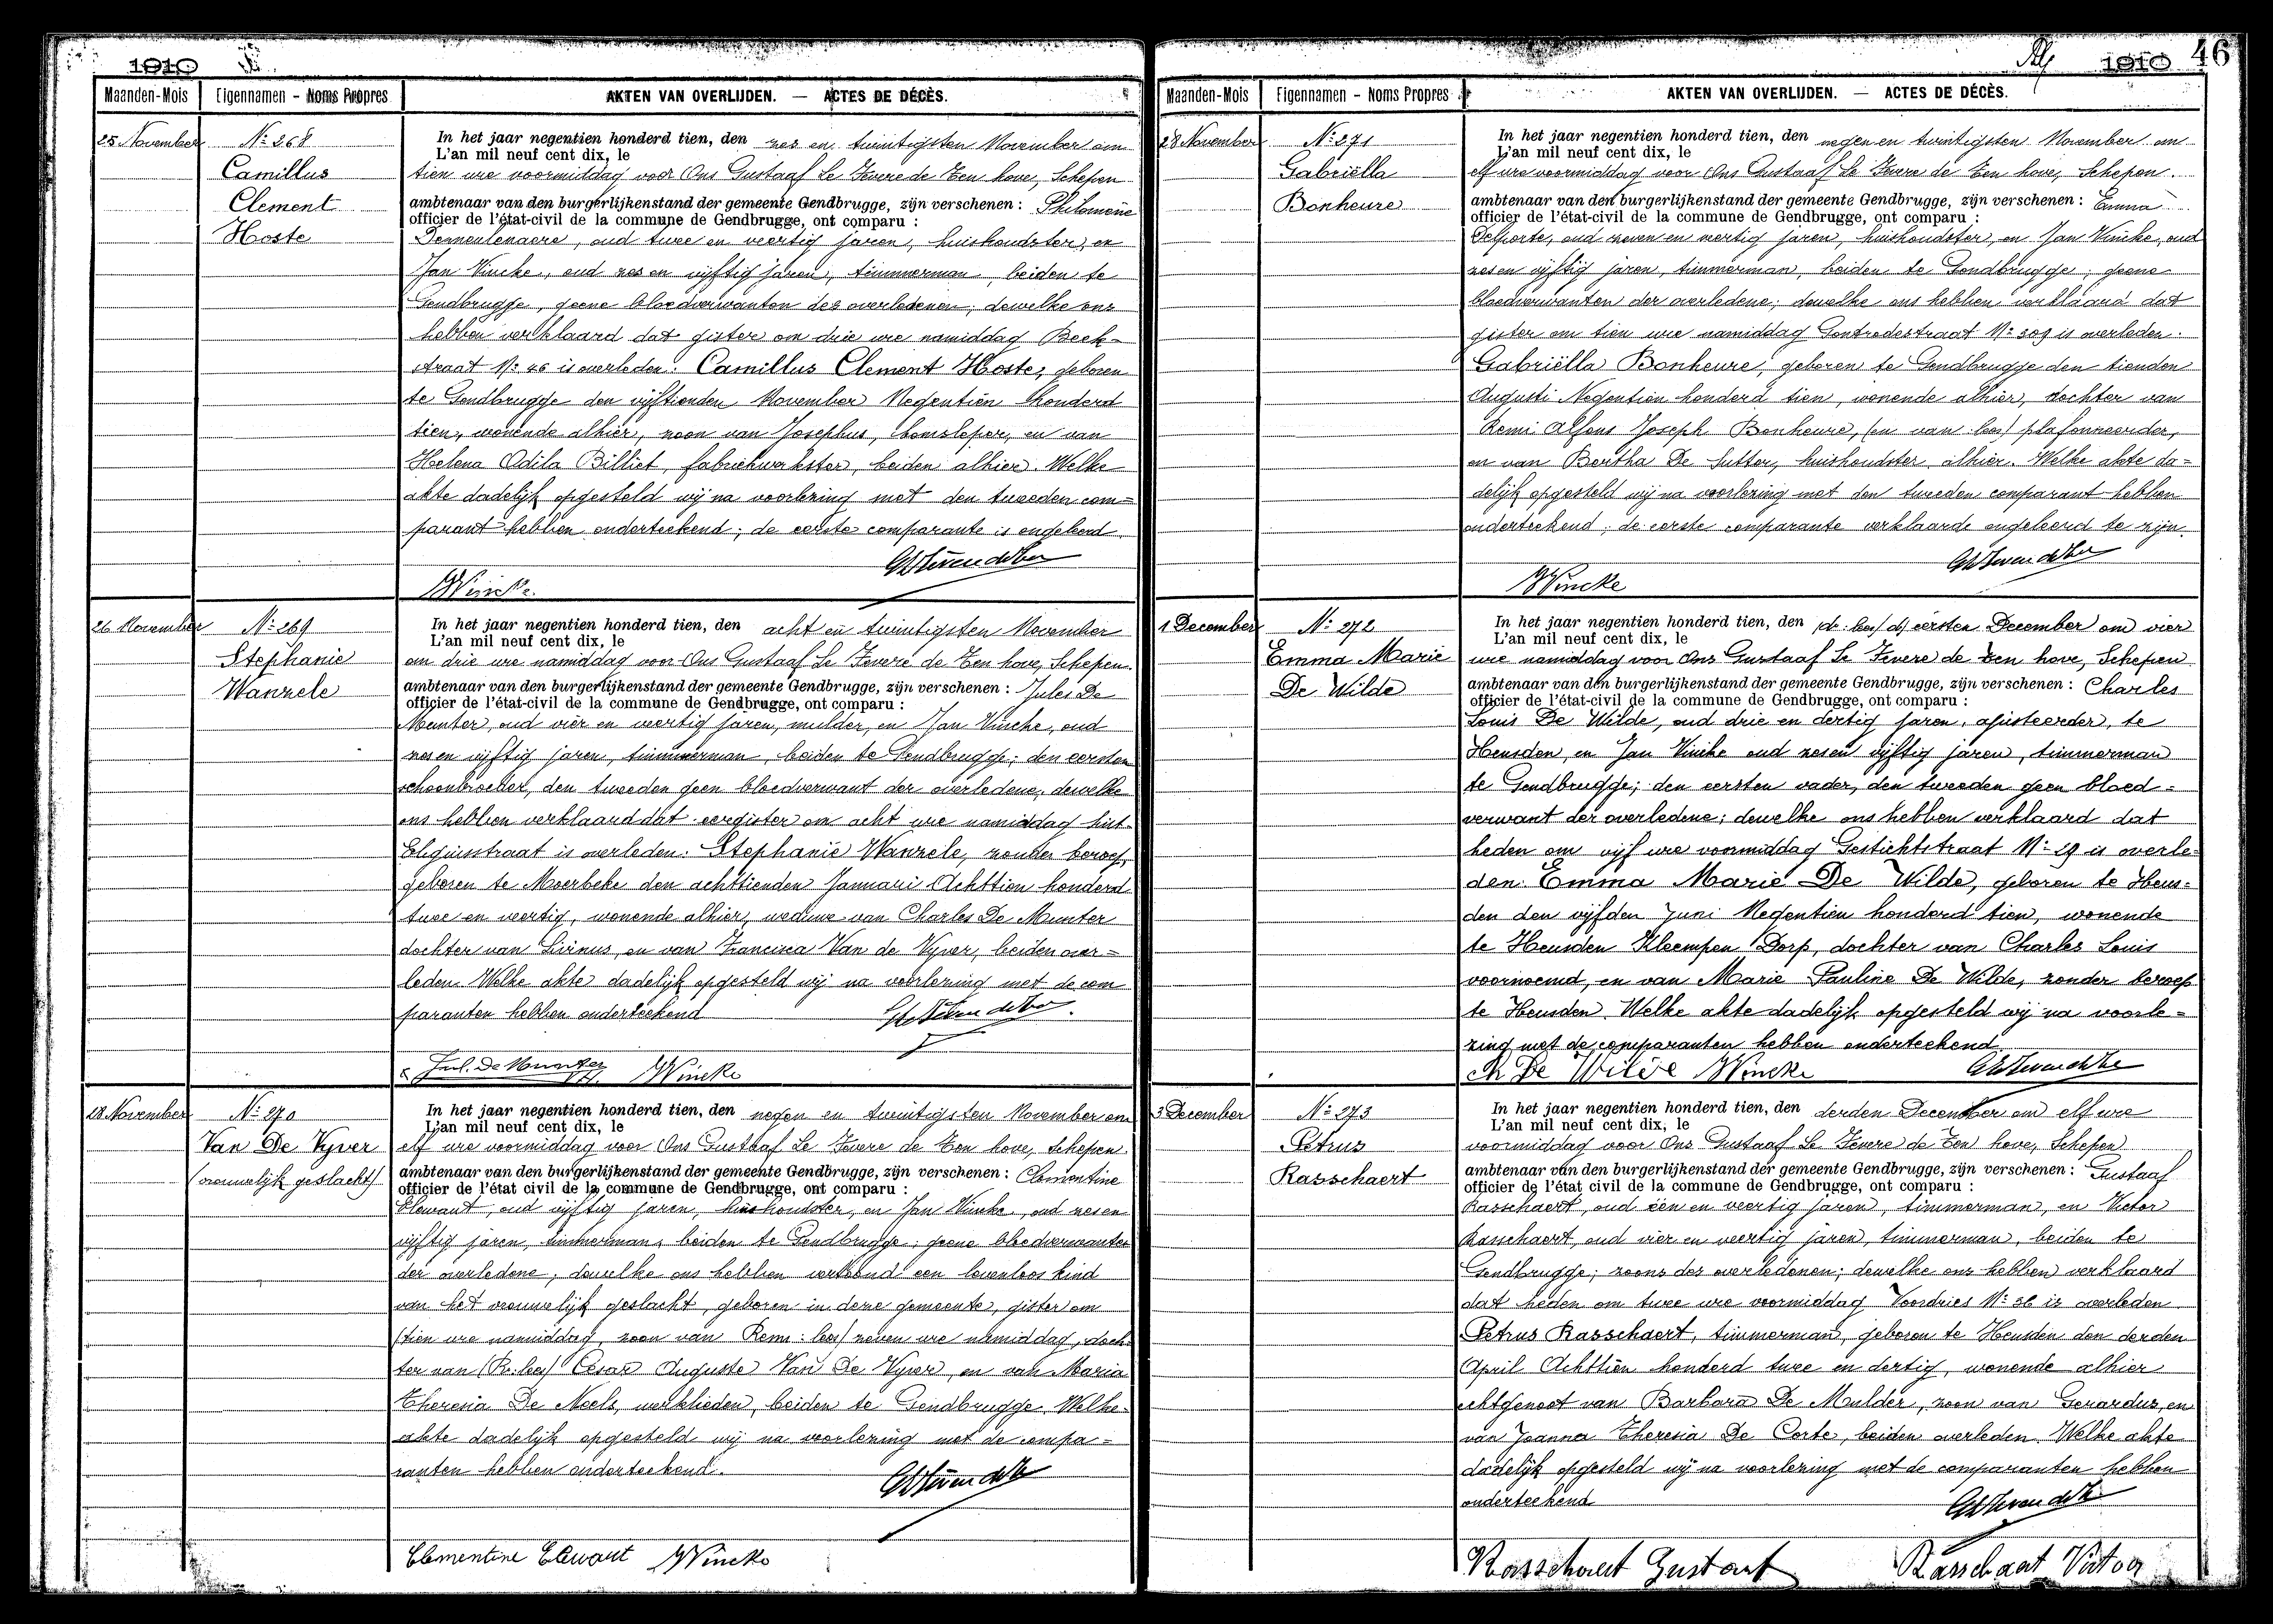 1910
Maanden-Mois Eigennamen - Noms Propres AKTEN VAN OVERLIJDEN. — ACTES DE DÉCÈS.
25 November
Nº 268
Camillus
Clement
Hoste
In het jaar negentien honderd tien, den zes en twintigsten November om
L'an mil neuf cent dix, le
tien ure voormiddag voor Ons Gustaaf Le Fevere de Ten hove, Schepen
ambtenaar van den burgerlijkenstand der gemeente Gendbrugge, zijn verschenen : Philomène
officier de l'état-civil de la commune de Gendbrugge, ont comparu :
Demeulenaere, oud twee en veertig jaren, huishoudster, en
Jan Vincke, oud zes en vijftig jaren, timmerman, beiden te
Gendbrugge, geene bloedverwanten des overledenen; dewelke ons
hebben verklaard dat gister om drie ure namiddag Beek-
straat Nº 46 is overleden: Camillus Clement Hoste, geboren
te Gendbrugge den vijftienden November Negentien honderd
tien, wonende alhier, zoon van Josephus, bomsleper, en van
Helena Odila Billiet, fabriekwerkster, beiden alhier. Welke
akte dadelijk opgesteld wij na voorlezing met den tweeden com=
parant hebben onderteekend; de eerste comparante is ongeleerd.
JVincke.
26 November
Nº 269
Stephanie
Wanzele
In het jaar negentien honderd tien, den acht en twintigsten November
L'an mil neuf cent dix, le
om drie ure namiddag voor Ons Gustaaf Le Fevere de Ten hove, Schepen.
ambtenaar van den burgerlijkenstand der gemeente Gendbrugge, zijn verschenen : Jules De
officier de l'état-civil de la commune de Gendbrugge, ont comparu :
Munter, oud vier en veertig jaren, mulder, en Jan Vincke, oud
zes en vijftig jaren, timmerman, beiden te Gendbrugge; den eersten
schoonbroeder, den tweeden geen bloedverwant der overledene; dewelke
ons hebben verklaard dat eergister om acht ure namiddag Sint-
Eligiusstraat is overleden: Stephanie Wanzele, zonder beroep,
geboren te Moerbeke den achttienden Januari Achttien honderd
twee en veertig, wonende alhier, weduwe van Charles De Munter
dochter van Livinus, en van Francisca Van de Vyver, beiden over=
leden. Welke akte dadelijk opgesteld wij na voorlezing met de com
paranten hebben onderteekend
Jul. De Munter JVincke
28 November
Nº 270
Van De Vyver
(vrouwelijk geslacht)
In het jaar negentien honderd tien, den negen en twintigsten November om
L'an mil neuf cent dix, le
elf ure voormiddag voor Ons Gustaaf Le Fevere de Ten hove, Schepen
ambtenaar van den burgerlijkenstand der gemeente Gendbrugge, zijn verschenen : Clementine
officier de l'état civil de la commune de Gendbrugge, ont comparu :
Elewaut, oud vijftig jaren, huishoudster, en Jan Vincke, oud zes en
vijftig jaren, timmerman, beiden te Gendbrugge; geene bloedverwanten
der overledene; dewelke ons hebben vertoond een levenloos kind
van het vrouwelijk geslacht, geboren in deze gemeente, gister om
(tien ure namiddag, zoon van Remi: lees) zeven ure namiddag, doch
ter van (Re: lees) Cesar Auguste Van De Vyver, en van Maria
Theresia De Neels, werklieden, beiden te Gendbrugge. Welke
akte dadelijk opgesteld wij na voorlezing met de compa=
ranten hebben onderteekend.
Clementine Elewaut JVincke
1910 46
Maanden-Mois Eigennamen - Noms Propres AKTEN VAN OVERLIJDEN. — ACTES DE DÉCÈS.
28 November
Nº 271
Gabriëlla
Bonheure
In het jaar negentien honderd tien, den negen en twintigsten November om
L'an mil neuf cent dix, le
elf ure voormiddag voor Ons Gustaaf Le Fevere de Ten hove, Schepen.
ambtenaar van den burgerlijkenstand der gemeente Gendbrugge, zijn verschenen : Emma
officier de l'état-civil de la commune de Gendbrugge, ont comparu :
Delporte, oud zeven en veertig jaren, huishoudster, en Jan Vincke, oud
zes en vijftig jaren, timmerman, beiden te Gendbrugge; geene
bloedverwanten der overledene; dewelke ons hebben verklaard dat
gister om tien ure namiddag Gontrodestraat Nº 309 is overleden:
Gabriëlla Bonheure, geboren te Gendbrugge den tienden
Augusti Negentien honderd tien, wonende alhier, dochter van
Remi Alfons Joseph Bonheure, (en van: lees) plafonneerder,
en van Bertha De Sutter, huishoudster alhier. Welke akte da=
delijk opgesteld wij na voorlezing met den tweeden comparant hebben
onderteekend; de eerste comparante verklaarde ongeleerd te zijn.
JVincke
1 December
Nº 272
Emma Marie
De Wilde
In het jaar negentien honderd tien, den (de: lees) d) eersten December om vier
L'an mil neuf cent dix, le
ure namiddag voor Ons Gustaaf Le Fevere de Ten hove, Schepen
ambtenaar van den burgerlijkenstand der gemeente Gendbrugge, zijn verschenen : Charles
officier de l'état-civil de la commune de Gendbrugge, ont comparu :
Louis De Wilde, oud drie en dertig jaren, ajusteerder, te
Heusden, en Jan Vincke oud zes en vijftig jaren, timmerman
te Gendbrugge; den eersten vader, den tweeden geen bloed=
verwant der overledene; dewelke ons hebben verklaard dat
heden om vijf ure voormiddag Gestichtstraat Nº 29 is overle=
den: Emma Marie De Wilde, geboren te Heus=
den den vijfden Juni Negentien honderd tien, wonende
te Heusden Kleempen Dorp, dochter van Charles Louis
voornoemd, en van Marie Pauline De Wilde, zonder beroep
te Heusden. Welke akte dadelijk opgesteld wij na voorle=
zing met de comparanten hebben onderteekend
Ch De Wilde JVincke
3 December
Nº 273
Petrus
Rasschaert
In het jaar negentien honderd tien, den derden December om elf ure
L'an mil neuf cent dix, le
voormiddag voor Ons Gustaaf Le Fevere de Ten hove, Schepen
ambtenaar van den burgerlijkenstand der gemeente Gendbrugge, zijn verschenen : Gustaaf
officier de l'état civil de la commune de Gendbrugge, ont comparu :
Rasschaert, oud één en veertig jaren, timmerman, en Victor
Rasschaert, oud vier en veertig jaren, timmerman, beiden te
Gendbrugge; zoons des overledenen; dewelke ons hebben verklaard
dat heden om twee ure voormiddag Voordries Nº 36 is overleden
Petrus Rasschaert, timmerman, geboren te Heusden den derden
April Achttien honderd twee en dertig, wonende alhier
echtgenoot van Barbara De Mulder, zoon van Gerardus, en
van Joanna Theresia De Corte, beiden overleden. Welke akte
dadelijk opgesteld wij na voorlezing met de comparanten hebben
onderteekend
Rasschaert Gustaaf Rasschaert Victor